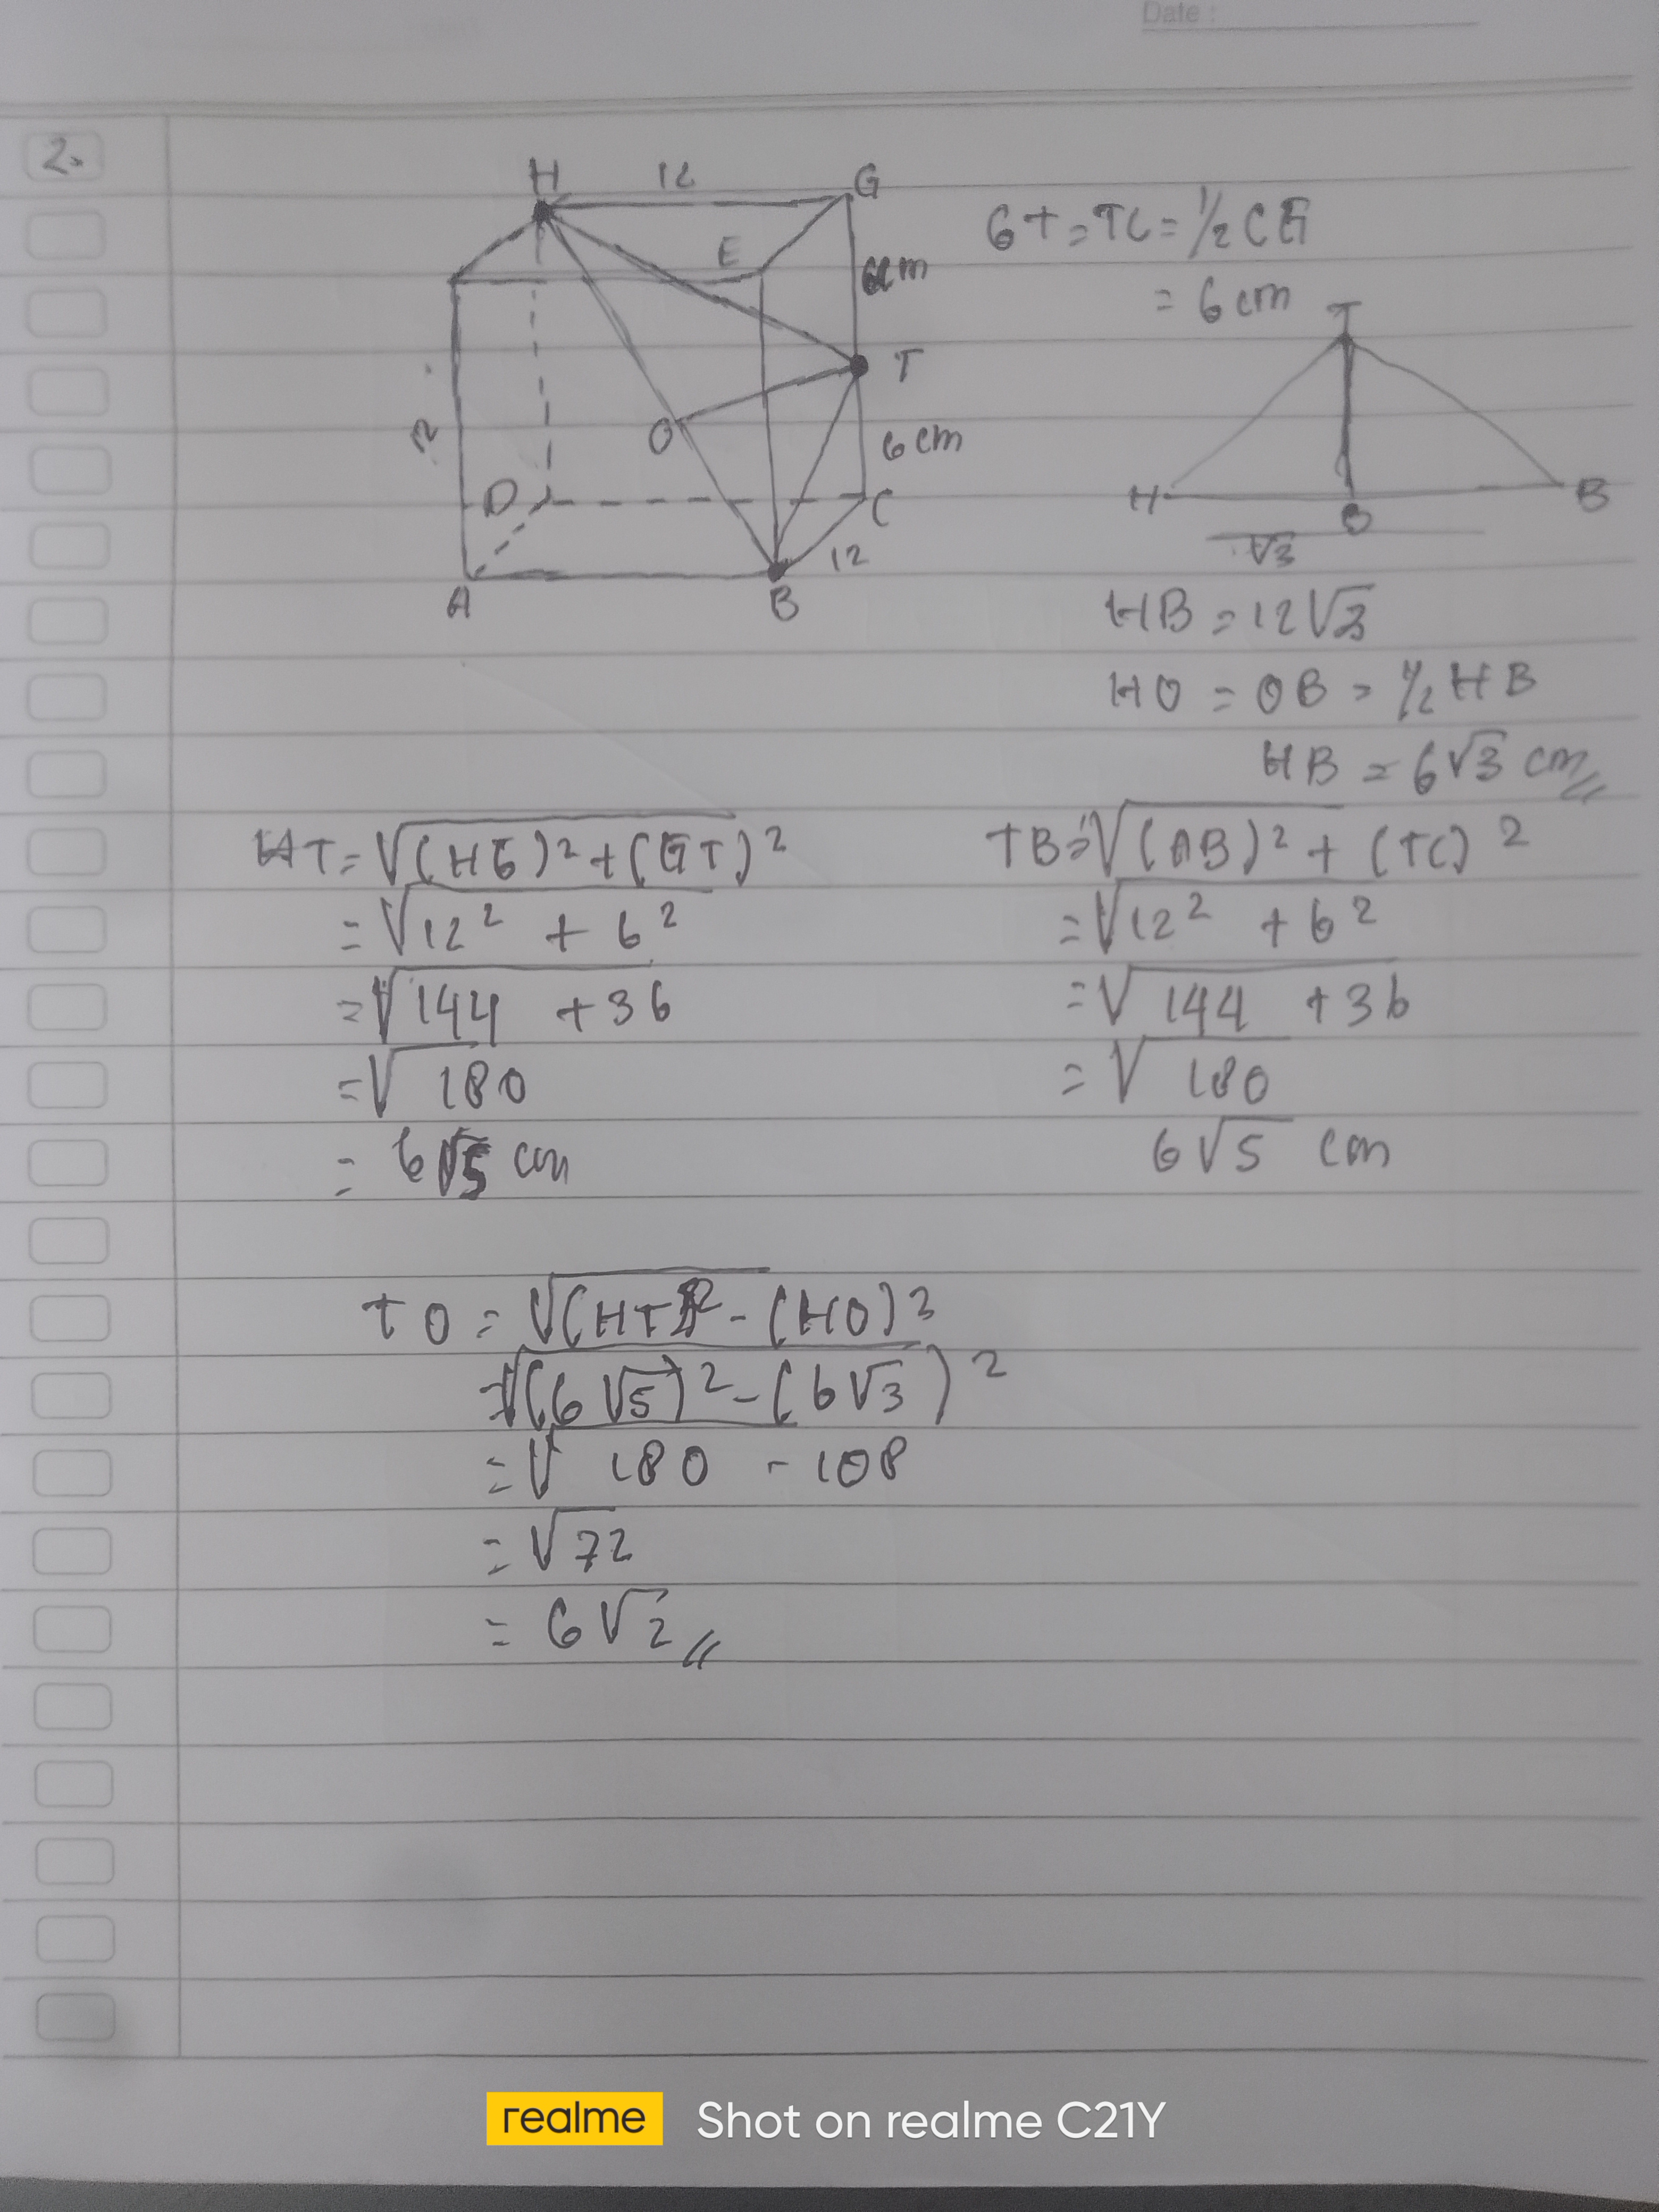 Date :
2.
H 12 G
E
6cm
T
12
O
6 cm
D
C
12
A B
GT = TC = ½ CG
= 6 cm
T
H O B
√3
HB = 12√3
HO = OB = ½ HB
HB = 6√3 cm //
HT = √(HG)² + (GT)²
= √12² + 6²
= √144 + 36
= √180
= 6√5 cm
TB = √(AB)² + (TC)²
= √12² + 6²
= √144 + 36
= √180
6√5 cm
TO = √(HT)² - (HO)²
= √(6√5)² - (6√3)²
= √180 - 108
= √72
= 6√2 //
realme Shot on realme C21Y